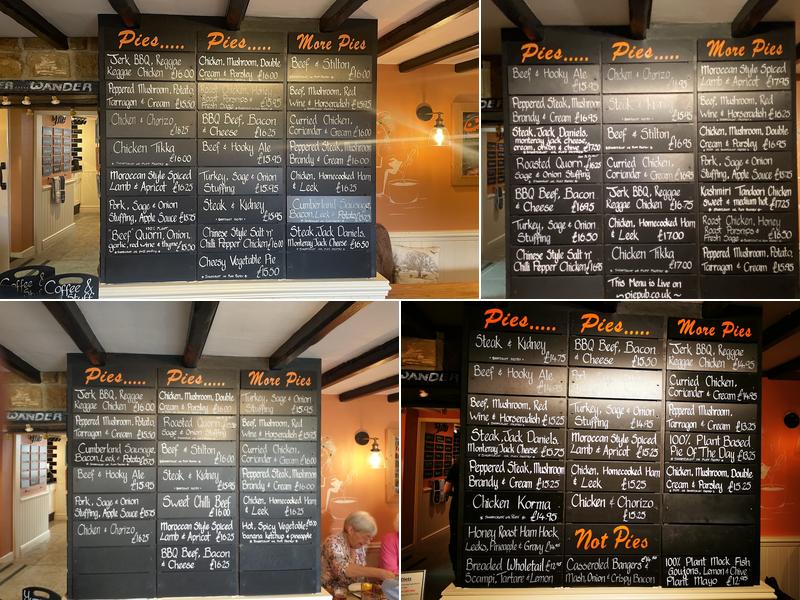 Pies.....
Jerk BBQ, Reggae
Reggae Chicken £16.00
Peppered Mushroom, Potato,
Tarragon + Cream £15.50
Chicken + Chorizo
£16.25
Chicken Tikka
£16.00
Moroccan Style Spiced
Lamb + Apricot £16.25
Pork, Sage + Onion
Stuffing, Apple Sauce £15.75
Beef Quorn, Onion,
garlic, red wine + thyme
Pies.....
Chicken, Mushroom, Double
Cream + Parsley £16.00
Roast Chicken, Honey
BBQ Beef, Bacon
& Cheese £16.25
Beef + Hooky Ale
£15.95
Turkey, Sage + Onion
Stuffing £15.95
Steak + Kidney
£15.95
Chinese Style Salt n'
Chilli Pepper Chicken £16.00
Cheesy Vegetable Pie
£15.50
More Pies
Beef + Stilton
£16.00
Beef, Mushroom, Red
Wine + Horseradish £15.95
Curried Chicken,
Coriander + Cream £16.00
Peppered Steak, Mushroom
Brandy + Cream £16.00
Chicken, Homecooked Ham
& Leek £16.25
Cumberland Sausage,
Bacon, Leek + Potato
Steak, Jack Daniels,
Monterey Jack Cheese £16.50
WANDER
Coffee &
Coffee &
Pies.....
Beef + Hooky Ale
£15.95
Peppered Steak, Mushroom
Brandy + Cream £16.95
Steak, Jack Daniels,
monterey jack cheese,
cream, onion & chive £17.00
Roasted Quorn £16.25
Sage + Onion Stuffing
BBQ Beef, Bacon
& Cheese £16.95
Turkey, Sage + Onion
Stuffing £16.50
Chinese Style Salt n'
Chilli Pepper Chicken £16.95
Pies.....
Chicken + Chorizo
£16.95
Steak + Kidney
Beef + Stilton
£16.95
Curried Chicken,
Coriander + Cream £16.95
Jerk BBQ, Reggae
Reggae Chicken £16.75
Chicken, Homecooked Ham
& Leek £17.00
Chicken Tikka
£17.00
This Menu is Live on
piepub.co.uk
More Pies
Moroccan Style Spiced
Lamb + Apricot £17.95
Beef, Mushroom, Red
Wine + Horseradish £16.95
Chicken, Mushroom, Double
Cream + Parsley £16.95
Pork, Sage + Onion
Stuffing, Apple Sauce £16.25
Kashmiri Tandoori Chicken
sweet + medium hot £17.25
Roast Chicken, Honey
Roast Parsnips +
Peppered Mushroom, Potato,
Tarragon + Cream £15.95
Pies.....
Jerk BBQ, Reggae
Reggae Chicken £16.00
Peppered Mushroom, Potato,
Tarragon + Cream £15.50
Cumberland Sausage,
Bacon, Leek + Potato
Beef + Hooky Ale
£15.95
Pork, Sage + Onion
Stuffing, Apple Sauce £15.75
Chicken + Chorizo
£16.25
Pies.....
Chicken, Mushroom, Double
Cream + Parsley £16.00
Roasted Quorn
Sage + Onion Stuffing
Beef + Stilton
£16.00
Steak + Kidney
£15.95
Sweet Chilli Beef
£16.00
Moroccan Style Spiced
Lamb + Apricot £16.25
BBQ Beef, Bacon
& Cheese £16.25
More Pies
Turkey, Sage + Onion
Stuffing £15.95
Beef, Mushroom, Red
Wine + Horseradish £15.95
Curried Chicken,
Coriander + Cream £16.00
Peppered Steak, Mushroom
Brandy + Cream £16.00
Chicken, Homecooked Ham
& Leek £16.25
Hot, Spicy Vegetable
banana ketchup + pineapple
WANDER
Pies.....
Steak + Kidney
£14.75
Beef + Hooky Ale
Beef, Mushroom, Red
Wine + Horseradish £15.25
Steak, Jack Daniels,
Monterey Jack Cheese £15.75
Peppered Steak, Mushroom
Brandy + Cream £15.25
Chicken Korma
£14.95
Honey Roast Ham Hock
Leeks, Pineapple + Gravy
Breaded Wholetail £12.95
Scampi, Tartare + Lemon
Pies.....
BBQ Beef, Bacon
& Cheese £15.50
Turkey, Sage + Onion
Stuffing £14.95
Moroccan Style Spiced
Lamb + Apricot £15.25
Chicken, Homecooked Ham
& Leek £15.25
Chicken + Chorizo
£15.25
Not Pies
Casseroled Bangers
Mash, Onion + Crispy Bacon
More Pies
Jerk BBQ, Reggae
Reggae Chicken £14.95
Curried Chicken,
Coriander + Cream £14.95
Peppered Mushroom,
Tarragon + Cream £13.25
100% Plant Based
Pie Of The Day £13.25
Chicken, Mushroom, Double
Cream + Parsley £15.25
100% Plant Mock Fish
Goujons, Lemon + Chive
Plant Mayo £12.95
WANDER